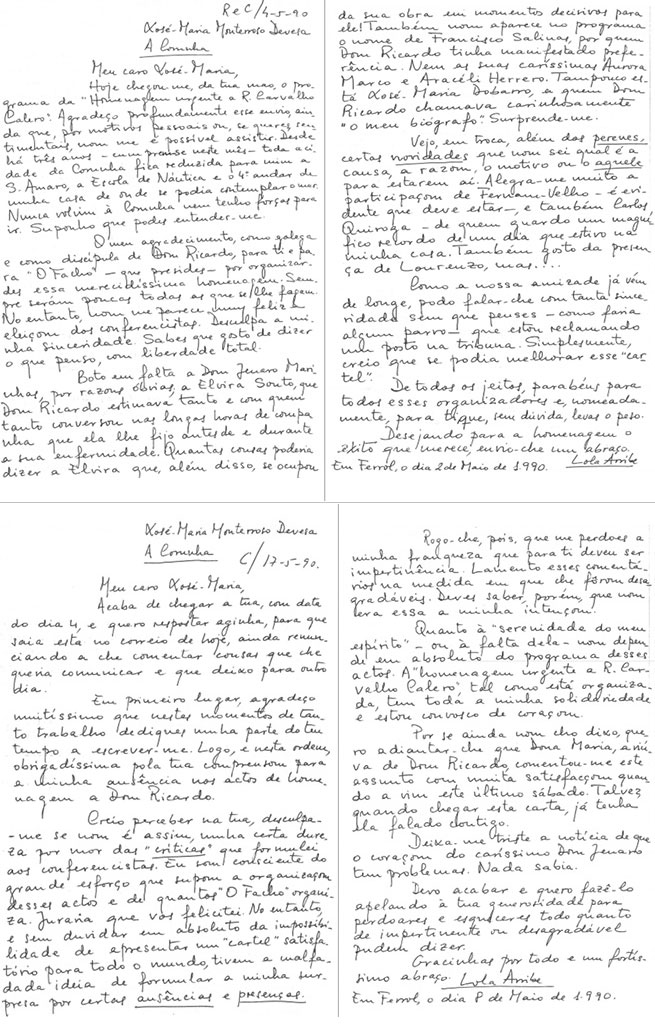 ReC/4-5-90
Xosé-Maria Monterroso Devesa
A Corunha
Meu caro Xosé-Maria,
Hoje chegou-me, da tua mao, o pro-
grama da "Homenagem urgente a R. Carvalho
Calero". Agradeço profundamente esse envio, ain-
da que, por motivos pessoais ou, se queres, sen-
timentais, nom me é possível assistir. Desde
há três anos - cumprem-se neste mês - toda a ci-
dade da Corunha fica reduzida para mim a
S. Amaro, a Escola de Náutica e o 4º andar de
umha casa de onde se podia contemplar o mar.
Nunca volvim à Corunha nem tenho forças para
ir. Suponho que podes entender-me.
O meu agradecimento, como galega
e como discípula de Dom Ricardo, para ti e pa-
ra "O Facho" - que presides - por organizar-
des essa merecidíssima homenagem. Sem-
pre serám poucas todas as que se lhe fagam.
No entanto, nom me parece muy feliz a
eleiçom dos conferencistas. Desculpa a mi-
nha sinceridade. Sabes que gosto de dizer
o que penso, com liberdade total.
Boto em falta a Dom Jenaro Mari-
nhas, por razons óbvias, a Elvira Souto, que
Dom Ricardo estimava tanto e com quem
tanto conversou nas longas horas de compa-
nha que ela lhe fijo antes de e durante
a sua enfermidade. Quantas cousas poderia
dizer a Elvira que, além disso, se ocupou
da sua obra em momentos decisivos para
ele! Também nom aparece no programa
o nome de Francisco Salinas, por quem
Dom Ricardo tinha manifestado prefe-
rência. Nem as suas caríssimas Aurora
Marco e Aracéli Herrero. Tampouco es-
tá Xosé-Maria Dobarro, a quem Dom
Ricardo chamava carinhosamente
"o meu biógrafo". Surprende-me.
Vejo, em troca, além dos perenes,
certas novidades que nom sei qual é a
causa, a razom, o motivo ou o aquele
para estarem aí. Alegra-me muito a
participaçom de Fernam-Velho - é evi-
dente que deve estar -, e também Carlos
Quiroga - de quem guardo um magní-
fico recordo de um dia que estivo na
minha casa. Também gosto da presen-
ça de Lourenzo, mas....
Como a nossa amizade já vém
de longe, podo falar-che com tanta since-
ridade sem que penses - como faria
algum parvo - que estou reclamando
um posto na tribuna. Simplesmente,
creio que se podia melhorar esse "car-
tel".
De todos os jeitos, parabéns para
todos esses organizadores e, nomeada-
mente, para ti que, sem dúvida, levas o peso.
Desejando para a homenagem o
êxito que merece, envio-che um abraço.
Lola Arribe
Em Ferrol, o dia 2 de Maio de 1.990.
Xosé-Maria Monterroso Devesa
A Corunha
C/17-5-90.
Meu caro Xosé-Maria,
Acaba de chegar a tua, com data
do dia 4, e quero respostar aginha, para que
saia esta no correio de hoje, ainda renun-
ciando a che comentar cousas que che
queria comunicar e que deixo para outro
dia.
Em primeiro lugar, agradeço
muitíssimo que nestes momentos de tan-
to trabalho dediques unha parte do teu
tempo a escrever-me. Logo, e nesta ordem,
obrigadíssima pola tua comprensom para
a minha ausência nos actos de home-
nagem a Dom Ricardo.
Creio perceber na tua, desculpa-
-me se nom é assim, umha certa dure-
za por mor das "críticas" que formulei
aos conferencistas. Eu som consciente do
grande esforço que supom a organizaçom
desses actos e de quantos "O Facho" organi-
za. Juraria que vos felicitei. No entanto,
e sem duvidar em absoluto da impossibi-
lidade de apresentar um "cartel" satisfa-
tório para todo o mundo, tivem a malfa-
dada ideia de formular a minha sur-
presa por certas ausências e presenças.
Rogo-che, pois, que me perdoes a
minha franqueza que para ti deveu ser
impertinência. Lamento esses comentá-
rios na medida em que che fôrom desa-
gradáveis. Deves saber, porém, que nom
era essa a minha intençom.
Quanto à "serenidade do meu
espírito" - ou à falta dela - nom depen-
de em absoluto do programa desses
actos. A "homenagem urgente a R. Car-
valho Calero" tal como está organiza-
da, tem toda a minha solidariedade
e estou convosco de coraçom.
Por se ainda nom cho dixo, que-
ro adiantar-che que Dona Maria, a viú-
va de Dom Ricardo, comentou-me este
assunto com muita satisfaçom quan-
do a vim este último sábado. Talvez
quando chegar esta carta, já tenha
ela falado contigo.
Deixa-me triste a notícia de que
o coraçom do caríssimo Dom Jenaro
tem problemas. Nada sabia.
Devo acabar e quero fazê-lo
apelando à tua generosidade para
perdoares e esqueceres todo quanto
de impertinente ou desagradável
pudem dizer.
Gracinhas por todo e um fortís-
simo abraço. Lola Arribe
Em Ferrol, o dia 8 de Maio de 1.990.